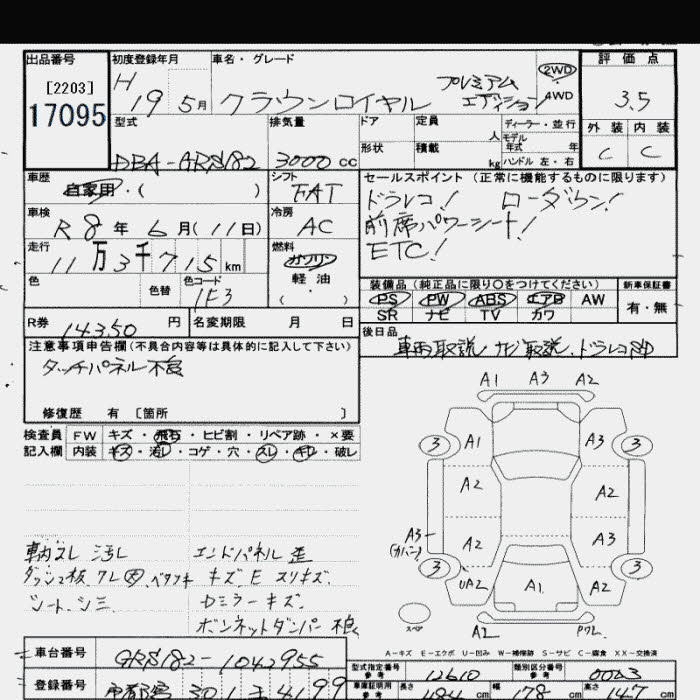 出品番号
[2203]
17095
初度登録年月
H 19 5月
車名・グレード
クラウンロイヤル プレミアム エディション
2WD
4WD
評価点
3.5
外装 内装
C C
型式
DBA-GRS182
排気量
3000 cc
ドア
形状
定員 人
積載 kg
ディーラー・並行
モデル年式 年
ハンドル 左・右
車歴
自家用・( )
シフト
FAT
セールスポイント (正常に機能するものに限ります)
ドラレコ! ローダウン!
前席パワーシート!
ETC!
車検
R 8 年 6 月(11日)
冷房
AC
走行
11万3千715km
燃料
ガソリン
軽油
( )
色
色替
色コード
1E3
装備品 (純正品に限り○をつけてください)
PS PW ABS エアB AW
SR ナビ TV カワ
新車保証書
有・無
R券
14350 円
名変期限 月 日
後日品
車両取説 ナビ取説、ドラレコSD
注意事項申告欄 (不具合内容等は具体的に記入して下さい)
タッチパネル不良
修復歴 有 〔箇所 〕
検査員記入欄
FW キズ・飛石・ヒビ割・リペア跡・×要
内装 キズ・汚レ・コゲ・穴・スレ・キレ・破レ
A1 A3 A2
3 A1 A3 3
A2 A2
A3 (カバー) A2 A3
3 UA2 A1 A2 3
スペア
A2 Pワレ
車内スレ 汚レ
エンドパネル 歪
キズ.E スリキズ.
シート、シミ
カミラーキズ.
ボンネットダンパー 不良
A-キズ E-エクボ U-凹み W-補修跡 S-サビ C-腐食 XX-交換済
車台番号
GRS182-1042955
型式指定番号
参考
12610
類別区分番号
参考
0023
登録番号
車庫証明用
参考
長さ
484 cm
幅
178 cm
高さ
147 cm